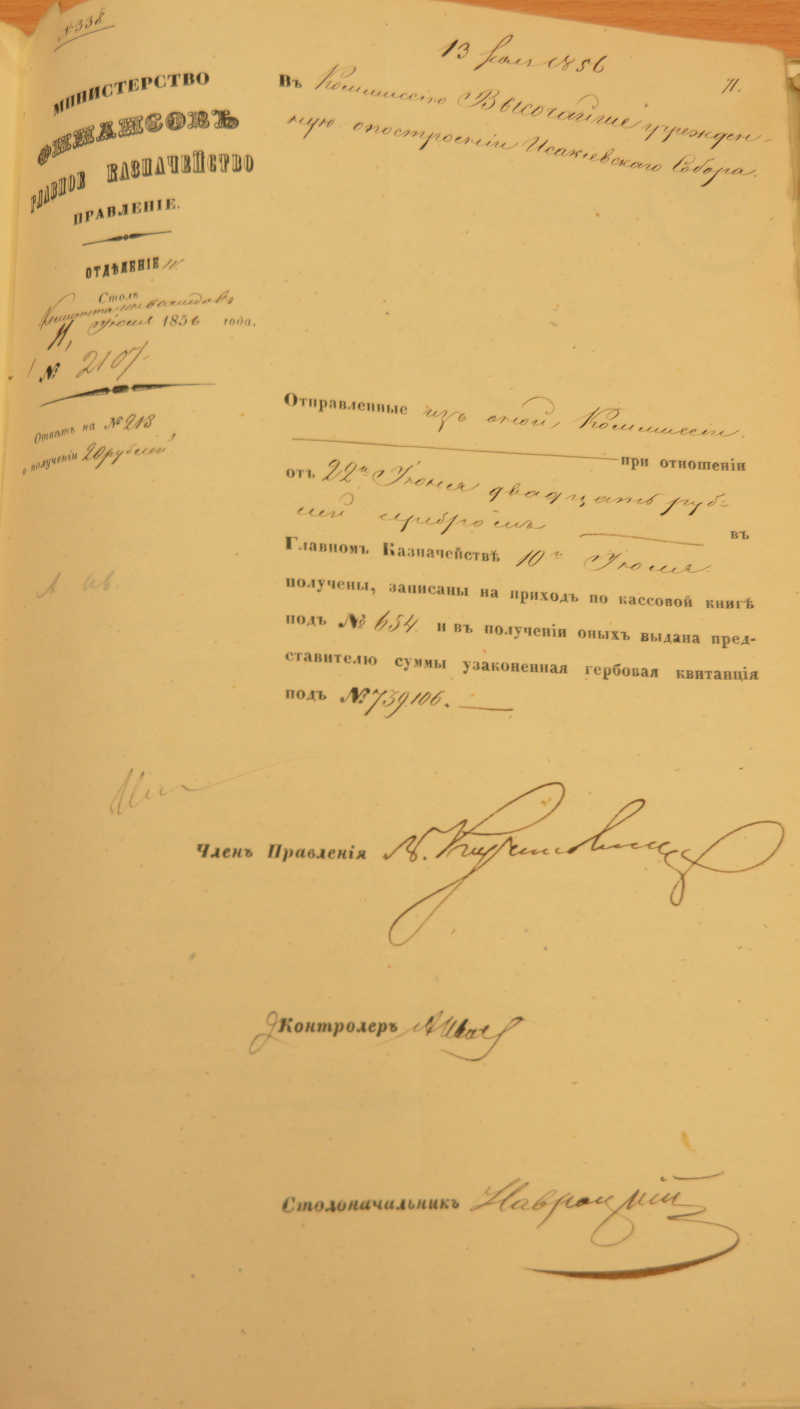 № 338
13 Іюля 1856
71.
МИНИСТЕРСТВО
ФИНАНСОВЪ
ГЛАВНОЕ КАЗНАЧЕЙСТВО
ПРАВЛЕНІЕ.
ОТДѢЛЕНІЕ
Столъ
11, Іюля 1856 года.
№ 2107
Отвѣтъ на № 218
о полученіи 20 рублей,
Въ Коммиссію Высочайше учрежден-
ную о построеніи Исакіевскаго Собора.
Отправленные изъ оной Коммиссіи
при отношеніи
отъ 22го Іюня двадцать руб-
лей серебромъ въ
Главномъ Казначействѣ 10го Іюля
получены, записаны на приходъ по кассовой книгѣ
подъ № 654 и въ полученіи оныхъ выдана пред-
ставителю суммы узаконенная гербовая квитанція
подъ № 739106.
Членъ Правленія
Контролеръ
Столоначальникъ Навроцкій